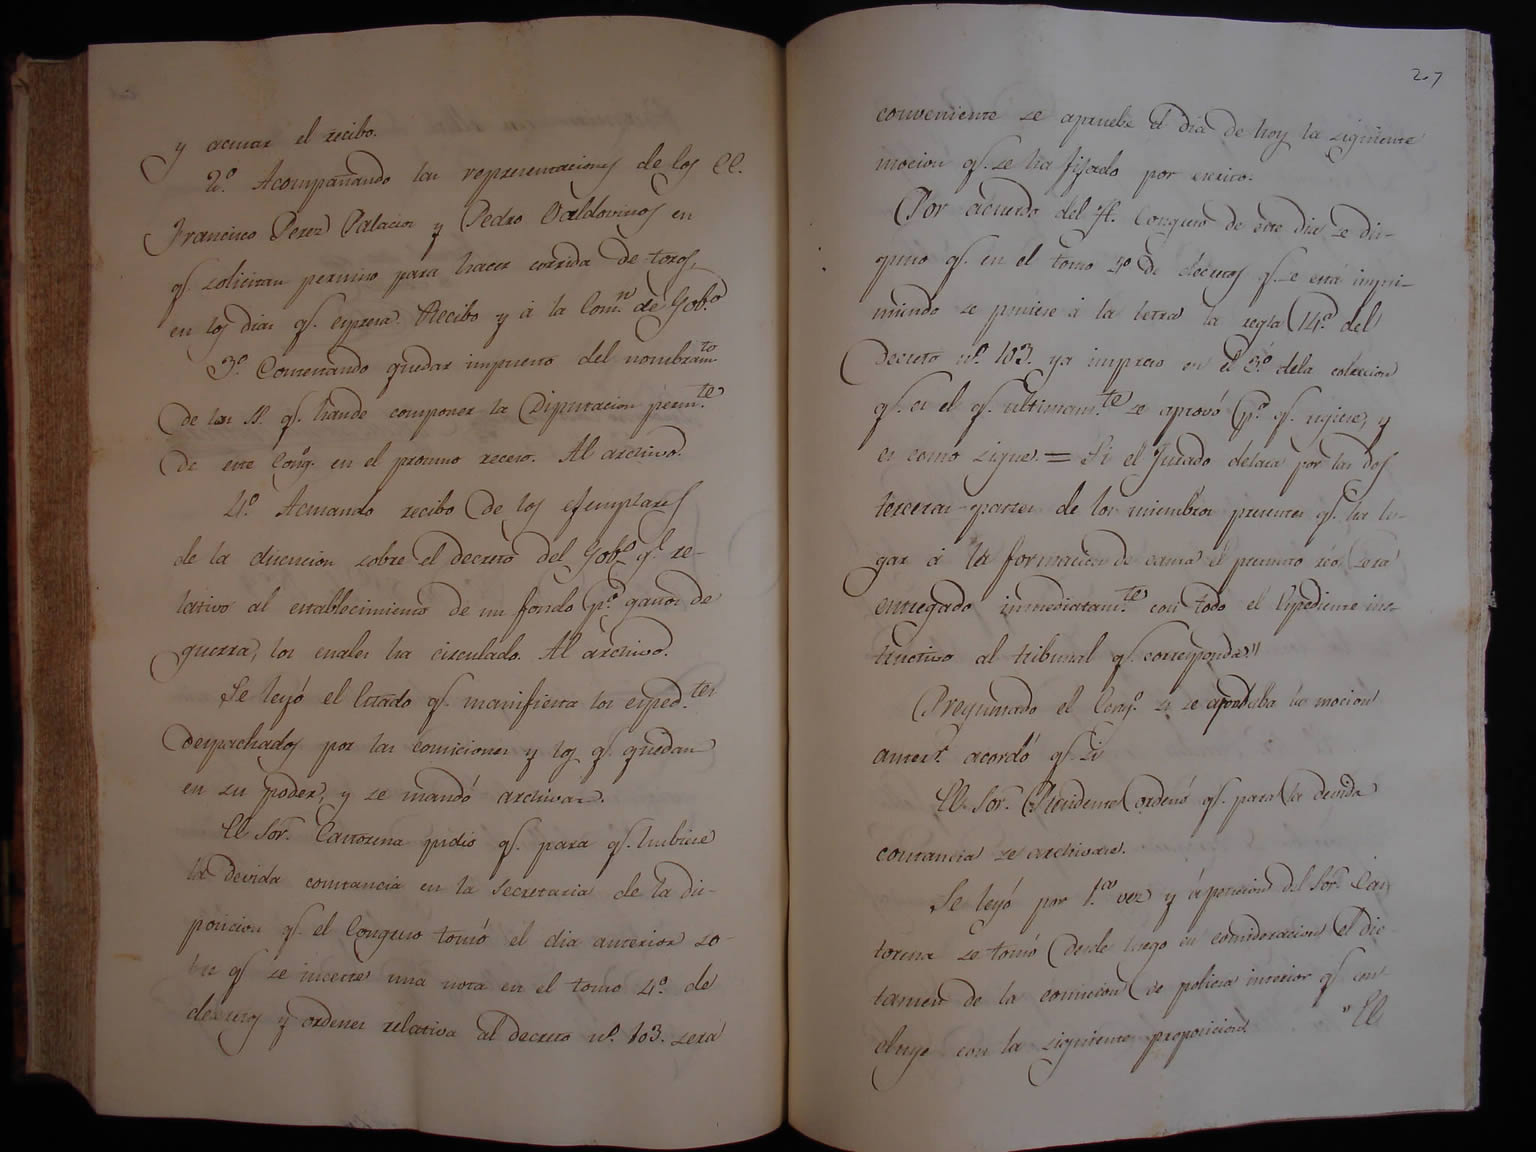 y acusar el recibo.
2.º Acompañando las representaciones de los CC.
Francisco Perez Palacios y Pedro Valdovinos en
q.e solicitan permiso para hacer corrida de toros,
en los dias q.e espresa. Recibo y á la Com.n de Gob.o
3.º Contestando quedar impuesto del nombram.to
de los SS. q.e hande componer la Diputacion perm.te
de este Cong.o en el proximo receso. Al archivo.
4.º Acusando recibo de los ejemplares
de la discucion sobre el decreto del Gob.o g.l re-
lativo al establecimiento de un fondo p.a gastos de
guerra, los cuales ha circulado. Al archivo.
Se leyó el Estado q.e manifiesta los exped.tes
despachados por las comiciones y los q.e quedan
en su poder, y se mandó archivar.
El Sor. Castorena pidió q.e para q.e hubiese
la devida constancia en la Secretaria de la dis-
posicion q.e el Congreso tomó el dia anterior so-
bre q.e se incerte una nota en el tomo 4.º de
decretos y ordenes relativa al decreto n.º 103. será
207
conveniente se apruebe el dia de hoy la siguiente
mocion q.e se ha fijado por escrito.
Por acuerdo del H. Congreso de este dia se dis-
puso q.e en el tomo 4º de decretos q.e se está impri-
miendo se pusiese á la letra la regla 14.ª del
Decreto n.º 103. ya impreso en el 3.º dela coleccion
q.e es el q.e ultimam.te se aprovó p.a q.e rigiese, y
es como sigue. = Si el Jurado declara por las dos
terceras partes de los miembros presentes q.e ha lu-
gar á la formacion de causa el presunto reo será
entregado inmediatam.te con todo el Expediente ins-
tructivo al tribunal q.e corresponda"
Preguntado el Cong.o si se aprobaba la mocion
anter.r acordó q.e si
El Sor. Presidente ordenó q.e para la devida
constancia se archivase.
Se leyó por 1.ª vez y á peticion del Sor. Cas-
torena se tomó desde luego en consideracion el dic-
tamen de la comicion de policia interior q.e con-
cluye con la siguiente proposicion. "El